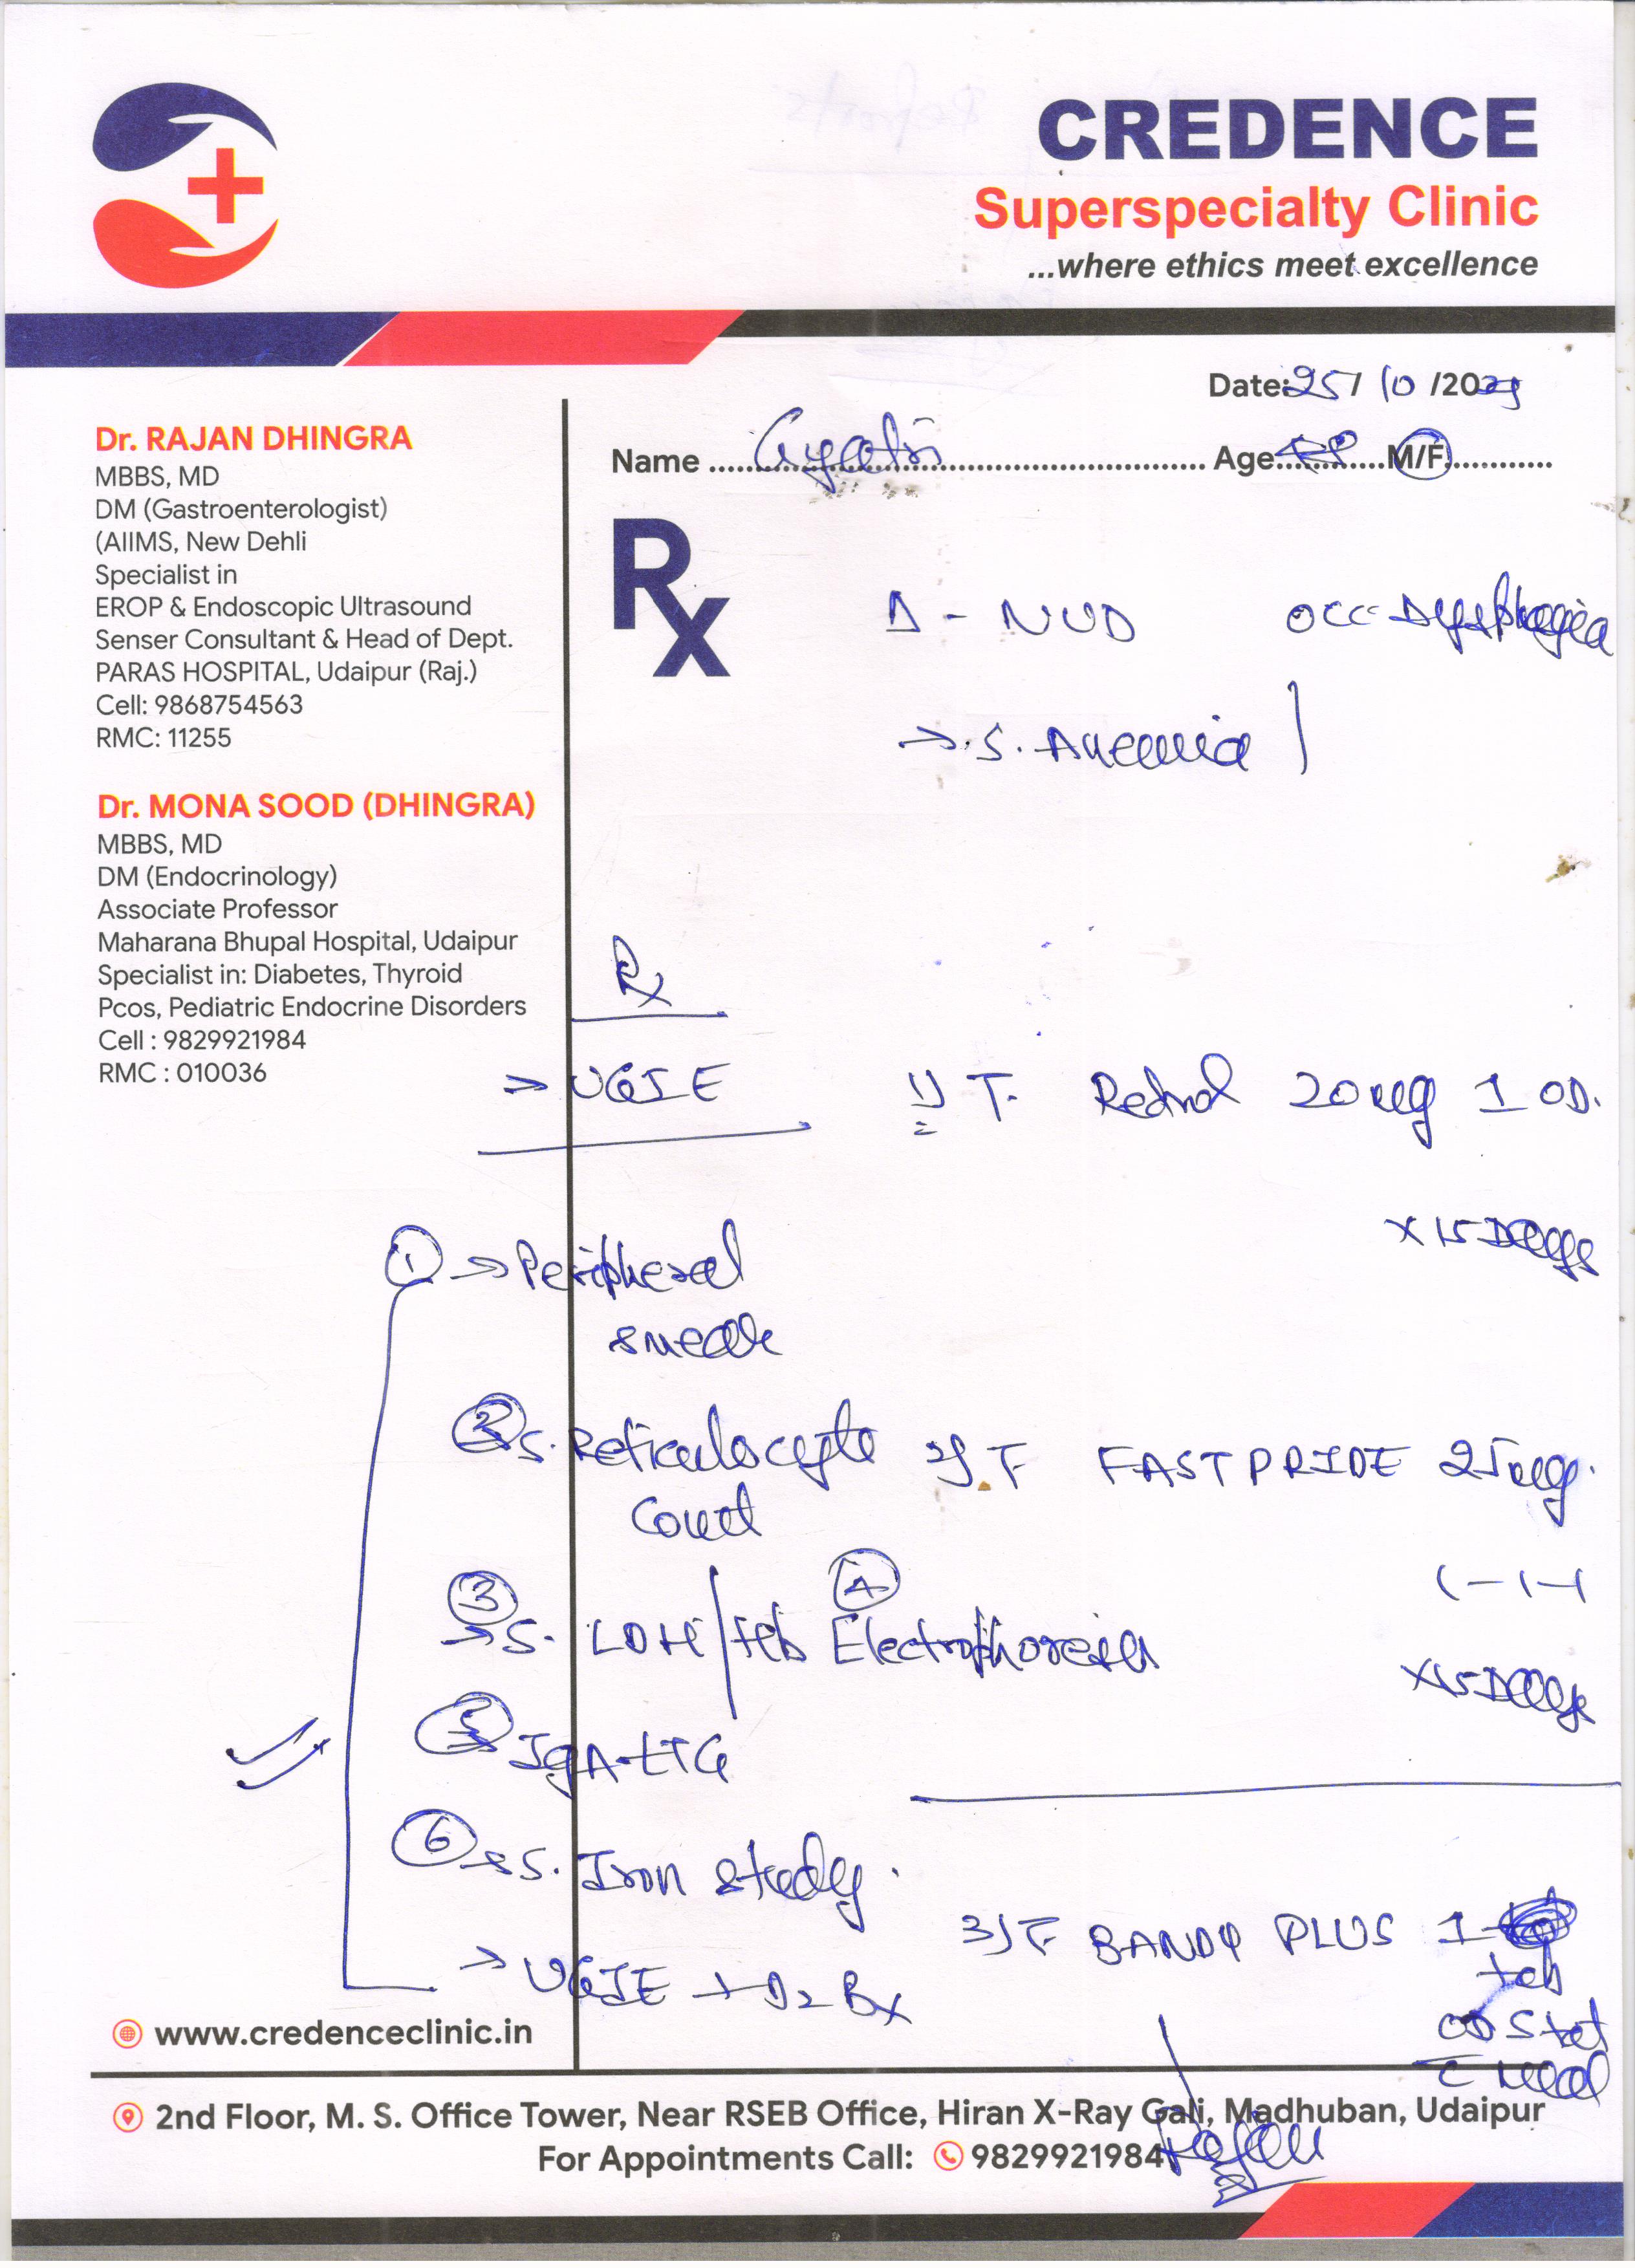 CREDENCE
Superspecialty Clinic
...where ethics meet excellence
Date: 25/ 10 /20
Name Gyatri Age M/F
Dr. RAJAN DHINGRA
MBBS, MD
DM (Gastroenterologist)
(AIIMS, New Dehli
Specialist in
EROP & Endoscopic Ultrasound
Senser Consultant & Head of Dept.
PARAS HOSPITAL, Udaipur (Raj.)
Cell: 9868754563
RMC: 11255
Dr. MONA SOOD (DHINGRA)
MBBS, MD
DM (Endocrinology)
Associate Professor
Maharana Bhupal Hospital, Udaipur
Specialist in: Diabetes, Thyroid
Pcos, Pediatric Endocrine Disorders
Cell : 9829921984
RMC : 010036
Rx
Δ - NUD occ Dysphagia
→ S. Anemia
Rx
→ UGIE
① → Peripheral
smear
② S. Reticulocyte
Count
③ → S. LDH / Hb ④ Electrophoresis
⑤ IgA-tTG
⑥ → S. Iron study.
→ UGIE + D2 Bx
1) T. 20mg 1 OD.
x 15 Days
2) T FASTPRIDE 25mg.
1-1-1
x 15 Days
3) T BANDY PLUS 1
tab
OD Stat
c meal
Rajan
www.credenceclinic.in
2nd Floor, M. S. Office Tower, Near RSEB Office, Hiran X-Ray Gali, Madhuban, Udaipur
For Appointments Call: 9829921984